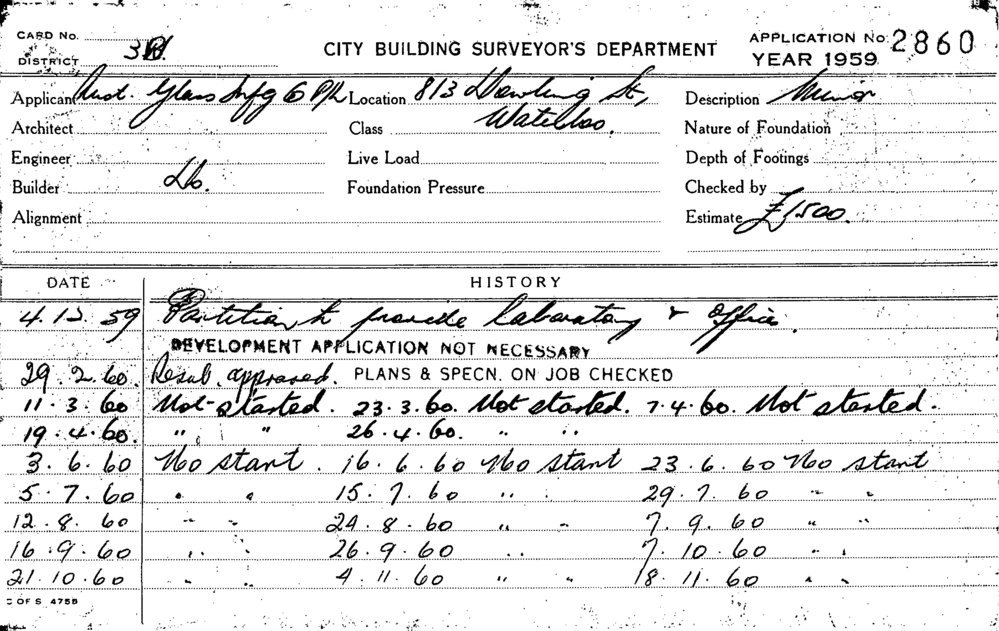 CARD No.
DISTRICT 3B
CITY BUILDING SURVEYOR'S DEPARTMENT
APPLICATION No. 2860
YEAR 1959
Applicant Aust. Glass Mfg Co P/L Location 813 Dowling St, Description Minor
Architect Class Waterloo. Nature of Foundation
Engineer Live Load Depth of Footings
Builder Do. Foundation Pressure Checked by
Alignment Estimate £1500.
DATE HISTORY
4.12.59 Partition to provide laboratory & office.
DEVELOPMENT APPLICATION NOT NECESSARY
29.2.60. Resub. approved. PLANS & SPECN. ON JOB CHECKED
11.3.60 Not started. 23.3.60. Not started. 7.4.60. Not started.
19.4.60. " " 26.4.60. " "
3.6.60 No start. 16.6.60 No start 23.6.60 No start
5.7.60 " " 15.7.60 " " 29.7.60 " "
12.8.60 " " 24.8.60 " " 7.9.60 " "
16.9.60 " " 26.9.60 " " 7.10.60 " "
21.10.60 " " 4.11.60 " " 18.11.60 " "
C OF S 475B